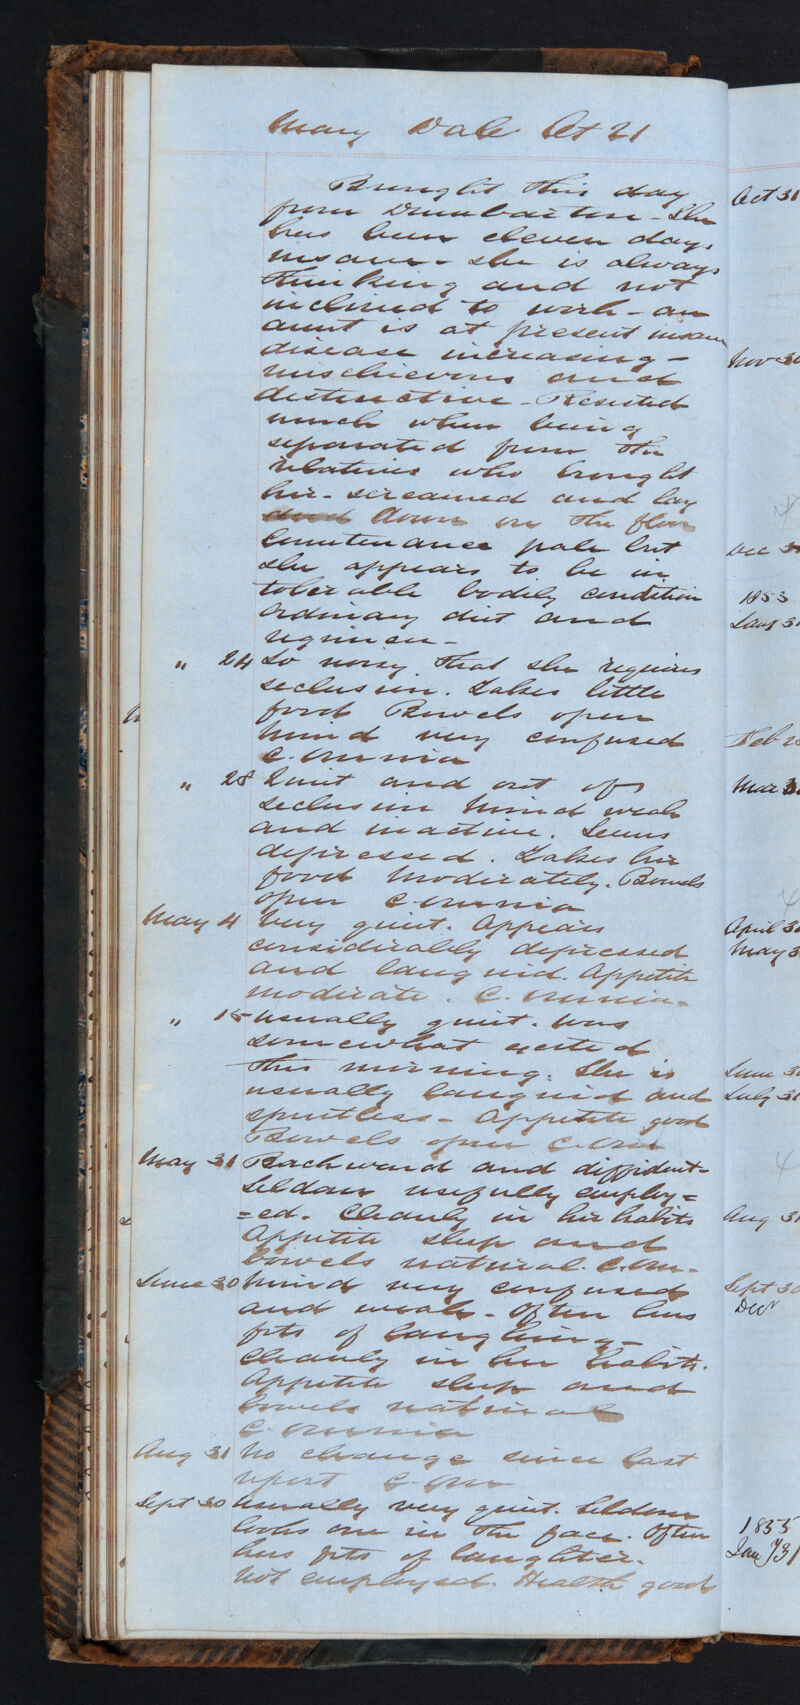 Mary Dale Aet 21
Brought this day
from Dumbarton - She
has been eleven days
insane - she is always
thinking and not
inclined to work - an
aunt is at present insane
disease increasing -
mischievous and
destructive - Resisted
much when being
separated from the
relatives who brought
her - screamed and lay
down on the floor
Countenance pale but
she appears to be in
tolerable bodily condition
ordinary diet and
regimen -
" 24 So noisy that she requires
seclusion. Takes little
food Bowels open
Mind very confused
C. omnia
" 28 Quiet and out of
seclusion Mind weak
and inactive. Seems
depressed. Takes her
food moderately. Bowels
open C omnia
May 4 Very quiet. Appears
considerably depressed
and languid. Appetite
moderate. C. omnia -
" 15 usually quiet. Was
somewhat excited
this morning. She is
usually languid and
spiritless - Appetite good
Bowels open C. om
May 31 Backward and diffident -
Seldom usefully employ =
= ed. Cleanly in her habits
Appetite sleep and
bowels natural. C. om -
June 30 Mind very confused
and weak - Often has
fits of laughing -
Cleanly in her habits.
Appetite sleep and
bowels natural
C. omnia
Aug 31 No change since last
report C. om
Sept 30 Usually very quiet. Seldom
looks one in the face. Often
has fits of laughter.
Not employed. Health good
Oct 31
Nov 30
Dec 3
1853
Jany 31
Feb 2
Mar 3
April 30
May 3
June 3
July 31
Aug 31
Sept 30
Decr
1855
Jany 31